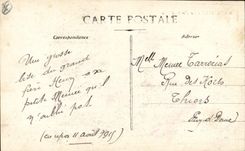 CARTE POSTALE
Correspondance
Adresse
Une grosse
bise du grand
frère Henry à sa
petite Mimie qu'il
n'oublie pas.
11 août 1915
Melle Mimie
Rue des
Thiers
Puy de Dôme